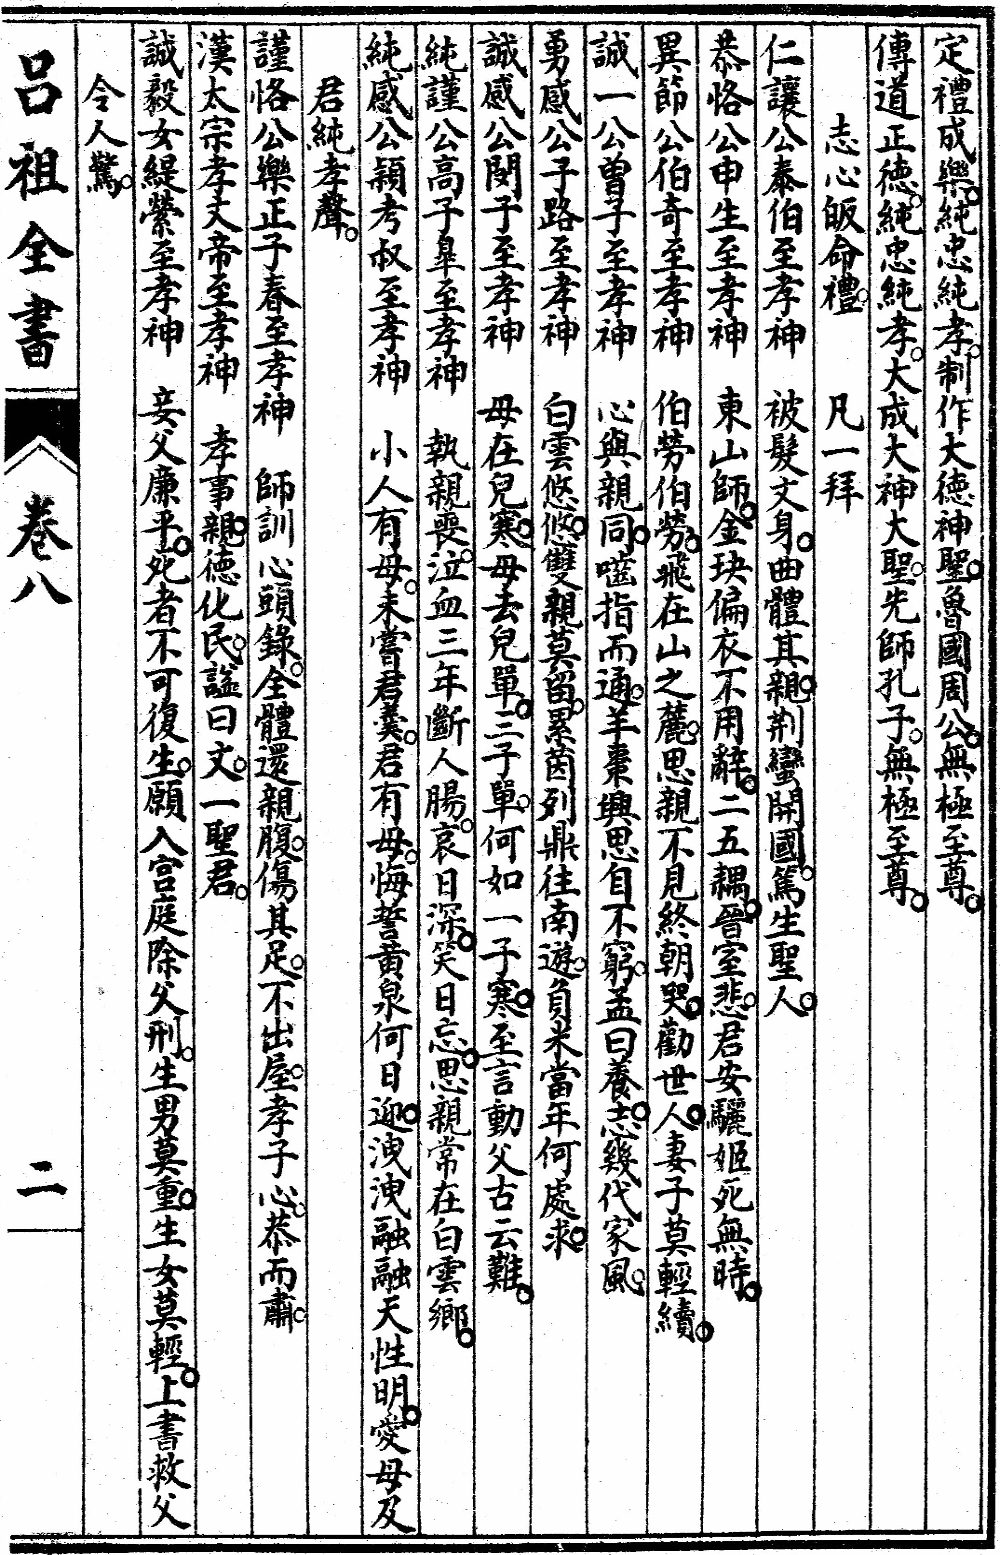 定禮成樂。純忠純孝。制作大德神聖。魯國周公。無極至尊。
傳道正德。純忠純孝。大成大神大聖。先師孔子。無極至尊。
志心皈命禮。　凡一拜
仁讓公泰伯至孝神　被髮文身。曲體其親。荆蠻開國。篤生聖人。
恭恪公申生至孝神　東山師。金玦偏衣不用辭。二五耦。晉室悲。君安驪姬死無時。
異節公伯奇至孝神　伯勞伯勞。飛在山之麓。思親不見終朝哭。勸世人。妻子莫輕續。
誠一公曾子至孝神　心與親同。嚙指而通。羊棗興思自不窮。孟曰養志。幾代家風。
勇感公子路至孝神　白雲悠悠。雙親莫留。累茵列鼎往南遊。負米當年何處求。
誠感公閔子至孝神　母在兒寒。母去兒單。三子單。何如一子寒。至言動父古云難。
純謹公高子皐至孝神　執親喪。泣血三年斷人腸。哀日深。笑日忘。思親常在白雲鄉。
純感公頴考叔至孝神　小人有母。未嘗君羹。君有母。悔誓黃泉何日迎。洩洩融融天性明。愛母及
君純孝聲。
謹恪公樂正子春至孝神　師訓心頭錄。全體還親腹。傷其足。不出屋。孝子心。恭而肅。
漢太宗孝文帝至孝神　孝事親。德化民。諡曰文。一聖君。
誠毅女緹縈至孝神　妾父廉平。死者不可復生。願入宮庭除父刑。生男莫重。生女莫輕。上書救父
令人驚。
呂祖全書　卷八　二